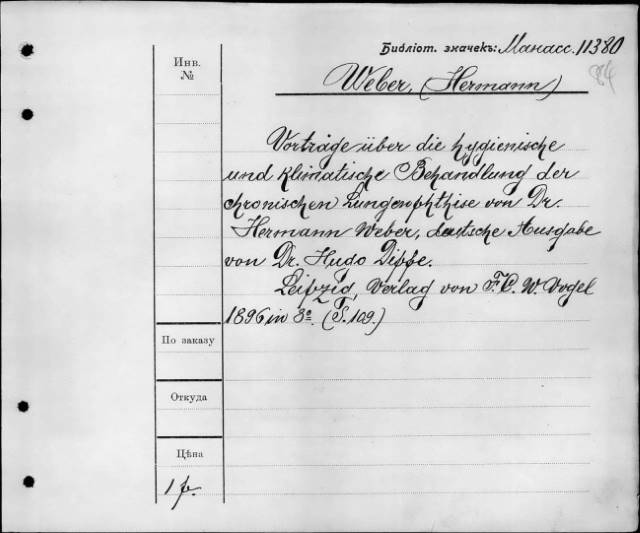 Библіот. значекъ: Манасс. 11380
84
Инв.
№
Weber, (Hermann)
Vorträge über die hygienische
und klimatische Behandlung der
chronischen Lungenphthise von Dr.
Hermann Weber, deutsche Ausgabe
von Dr. Hugo Dippe.
Leipzig, Verlag von F.C.W. Vogel
1896 in 8º. (S. 109.)
По заказу
Откуда
Цѣна
1 р.